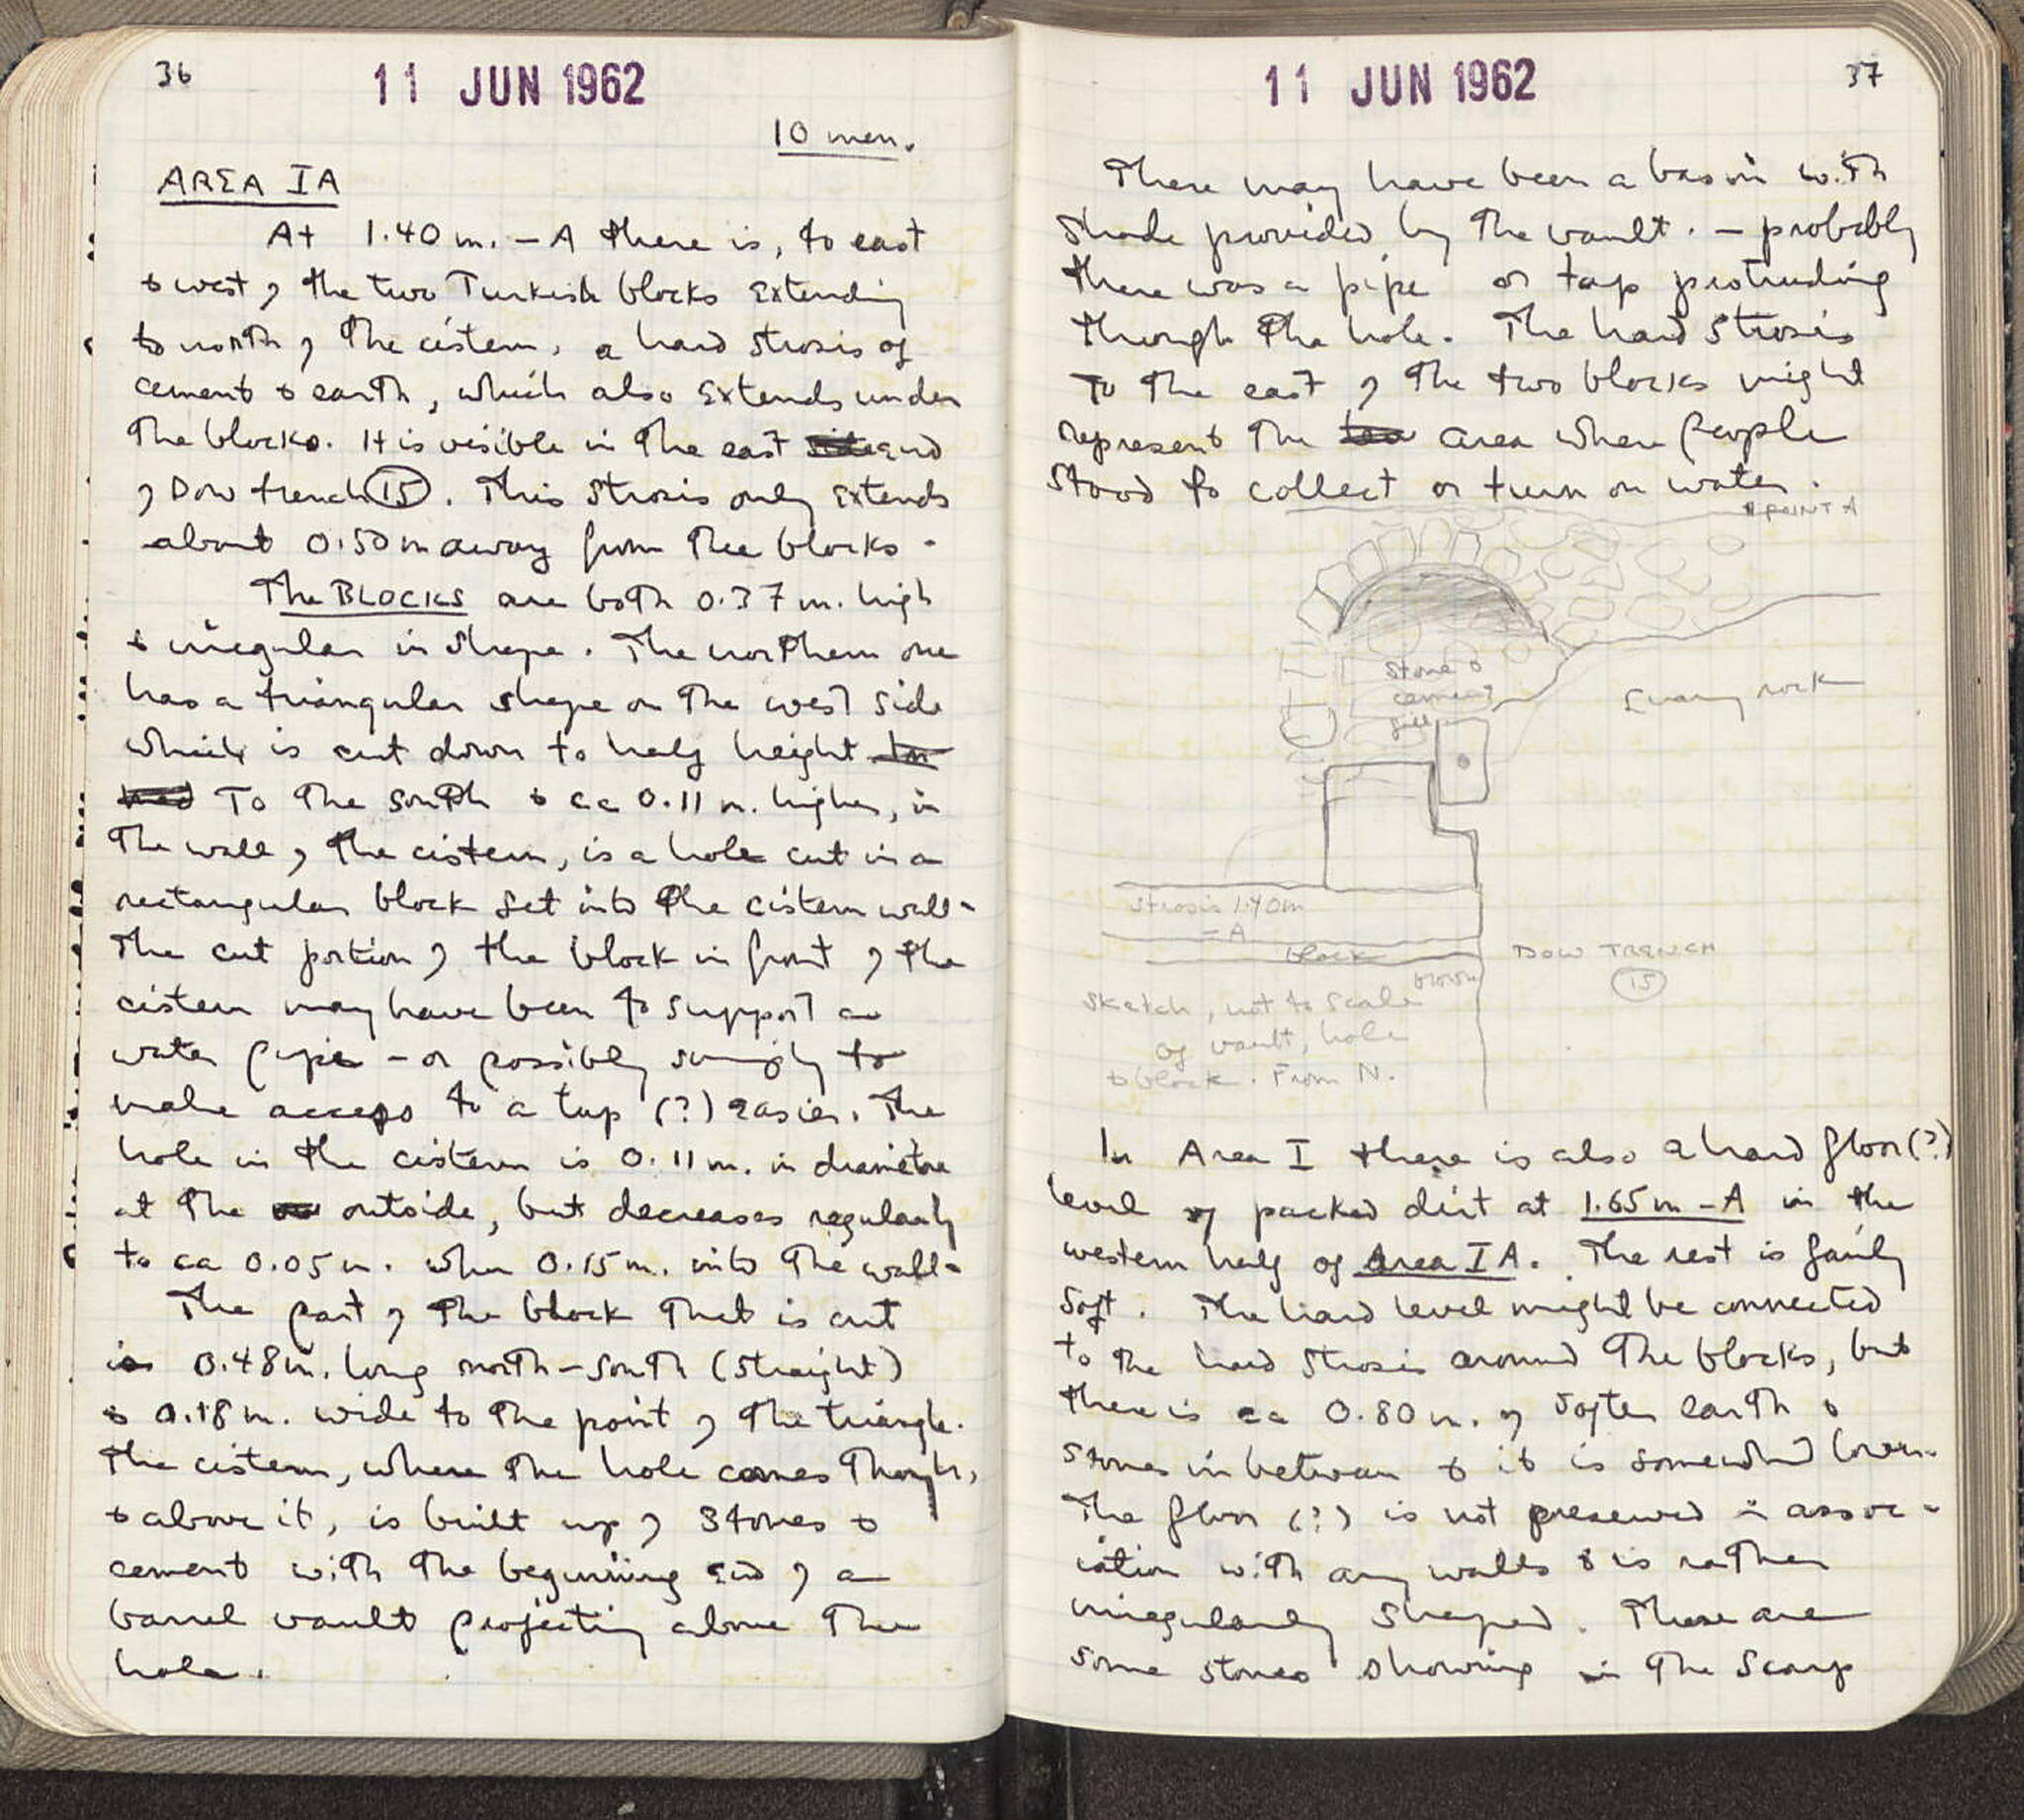 36
11 JUN 1962
10 men.
AREA IA
At 1.40 m. – A there is, to east
& west of the two Turkish blocks extending
to north of the cistern, a hard strosis of
cement & earth, which also extends under
the blocks. It is visible in the east side end
of Dow trench 15. This strosis only extends
about 0.50 m away from the blocks.
The BLOCKS are both 0.37 m. high
& irregular in shape. The northern one
has a triangular shape on the west side
which is cut down to half height
To the south & ca 0.11 m. higher, in
the wall of the cistern, is a hole cut in a
rectangular block set into the cistern wall.
The cut portion of the block in front of the
cistern may have been to support a
water pipe – or possibly simply to
make access to a tap (?) easier. The
hole in the cistern is 0.11 m. in diametre
at the outside, but decreases regularly
to ca 0.05 m. when 0.15 m. into the wall.
The part of the block that is cut
is 0.48 m. long north–south (straight)
& 0.18 m. wide to the point of the triangle.
The cistern, where the hole comes through,
& above it, is built up of stones &
cement with the beginning end of a
barrel vault projecting above the
hole.
11 JUN 1962
37
There may have been a basin with
shade provided by the vault. – probably
there was a pipe or tap protruding
through the hole. The hard strosis
to the east of the two blocks might
represent the area where people
stood to collect or turn on water.
POINT A
stone &
cement
fill
rock
strosis 1.40m
– A
block
DOW TRENCH
15
sketch, not to scale
of vault, hole
& block. From N.
In Area I there is also a hard floor (?)
level of packed dirt at 1.65 m – A in the
western half of Area IA. The rest is fairly
soft. The hard level might be connected
to the hard strosis around the blocks, but
there is ca 0.80 m. of softer earth &
stones in between & it is somewhat lower.
The floor (?) is not preserved in assoc-
iation with any walls & is rather
irregularly shaped. There are
some stones showing in the scarp